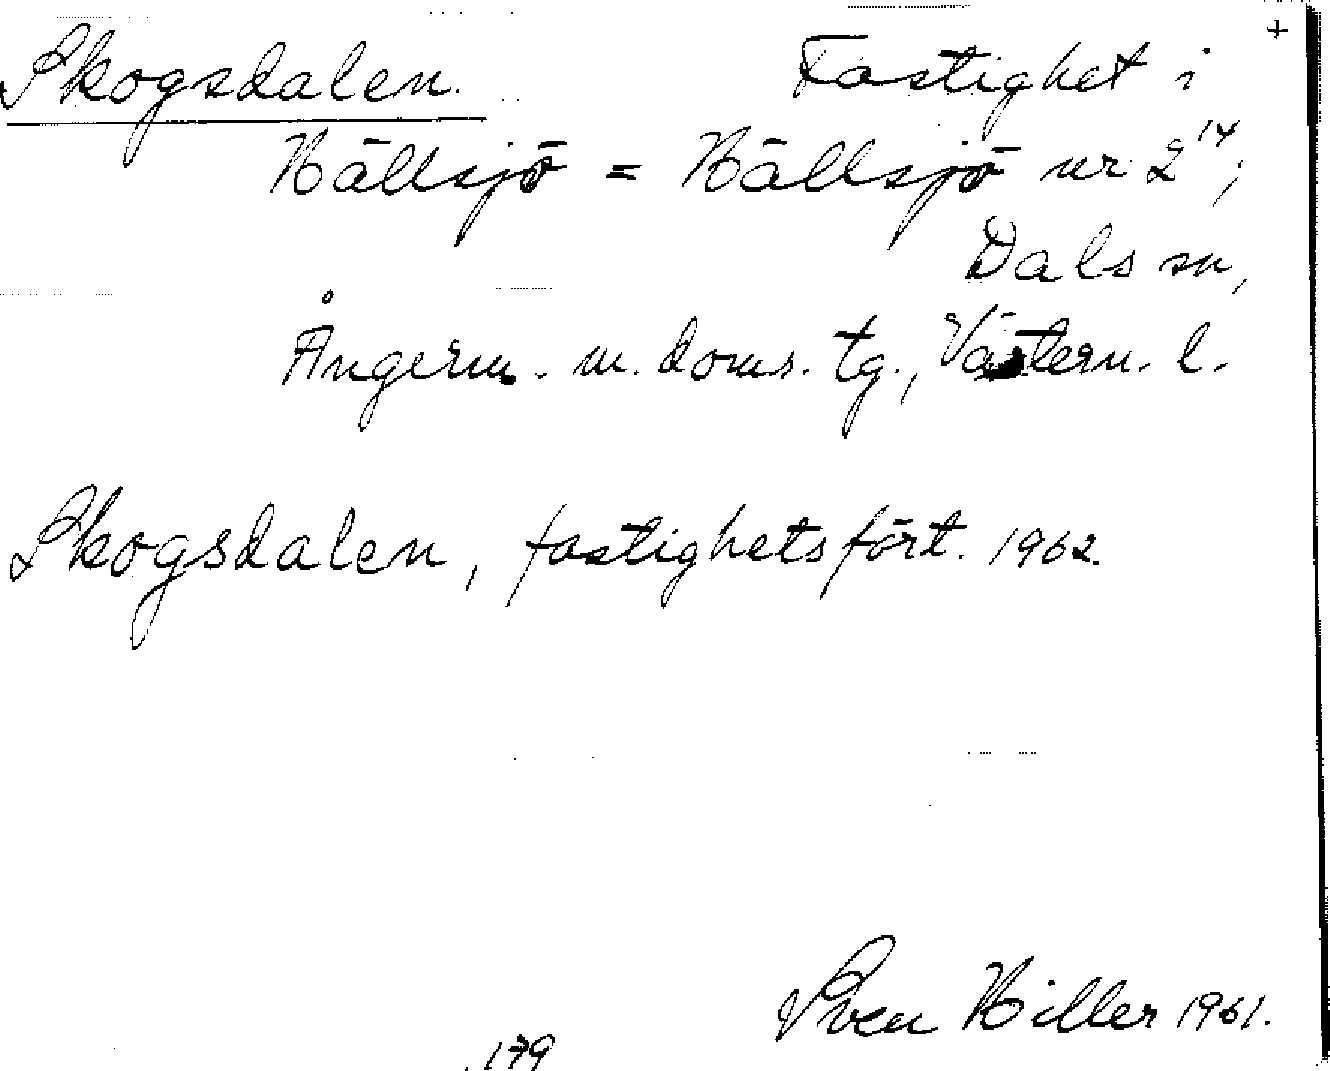 +
Skogsdalen. Fastighet i
Hällsjö = Hällsjö nr 2¹⁴;
Dals sn,
Ångerm. m. doms. tg., Västern. l.
Skogsdalen, fastighetsfört. 1962.
Sven Hiller 1961.
179